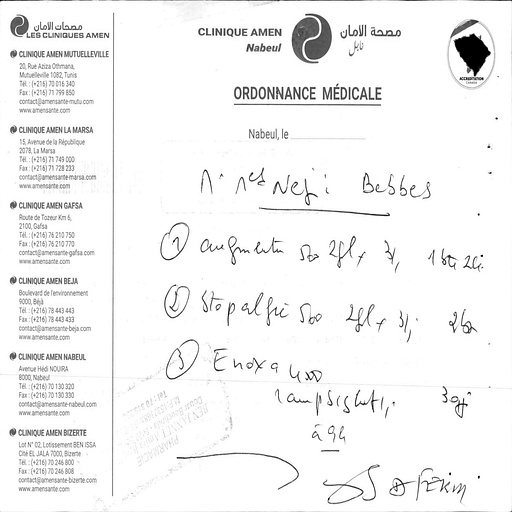 مصحات الامان
LES CLINIQUES AMEN
CLINIQUE AMEN
Nabeul
مصحة الامان
نابل
ACCREDITATION
ORDONNANCE MÉDICALE
Nabeul, le
CLINIQUE AMEN MUTUELLEVILLE
20, Rue Aziza Othmana,
Mutuelleville 1082, Tunis
Tél. : (+216) 70 016 340
Fax : (+216) 71 799 850
contact@amensante-mutu.com
www.amensante.com
CLINIQUE AMEN LA MARSA
15, Avenue de la République
2078, La Marsa
Tél. : (+216) 71 749 000
Fax : (+216) 71 728 233
contact@amensante-marsa.com
www.amensante.com
CLINIQUE AMEN GAFSA
Route de Tozeur Km 6,
2100, Gafsa
Tél. : (+216) 76 210 750
Fax : (+216) 76 210 770
contact@amensante-gafsa.com
www.amensante.com
CLINIQUE AMEN BEJA
Boulevard de l'environnement
9000, Béjà
Tél. : (+216) 78 443 443
Fax : (+216) 78 443 433
contact@amensante-beja.com
www.amensante.com
CLINIQUE AMEN NABEUL
Avenue Hédi NOUIRA
8000, Nabeul
Tél. : (+216) 70 130 320
Fax : (+216) 70 130 330
contact@amensante-nabeul.com
www.amensante.com
CLINIQUE AMEN BIZERTE
Lot N° 02, Lotissement BEN ISSA
Cité EL JALA 7000, Bizerte
Tél. : (+216) 70 246 800
Fax : (+216) 70 246 808
contact@amensante-bizerte.com
www.amensante.com
Neji Bebbes
① augmentin 500 2gl x 3/j
② Stopalgic 500 2gl x 3/j
③ Enoxa 4000
à 9h